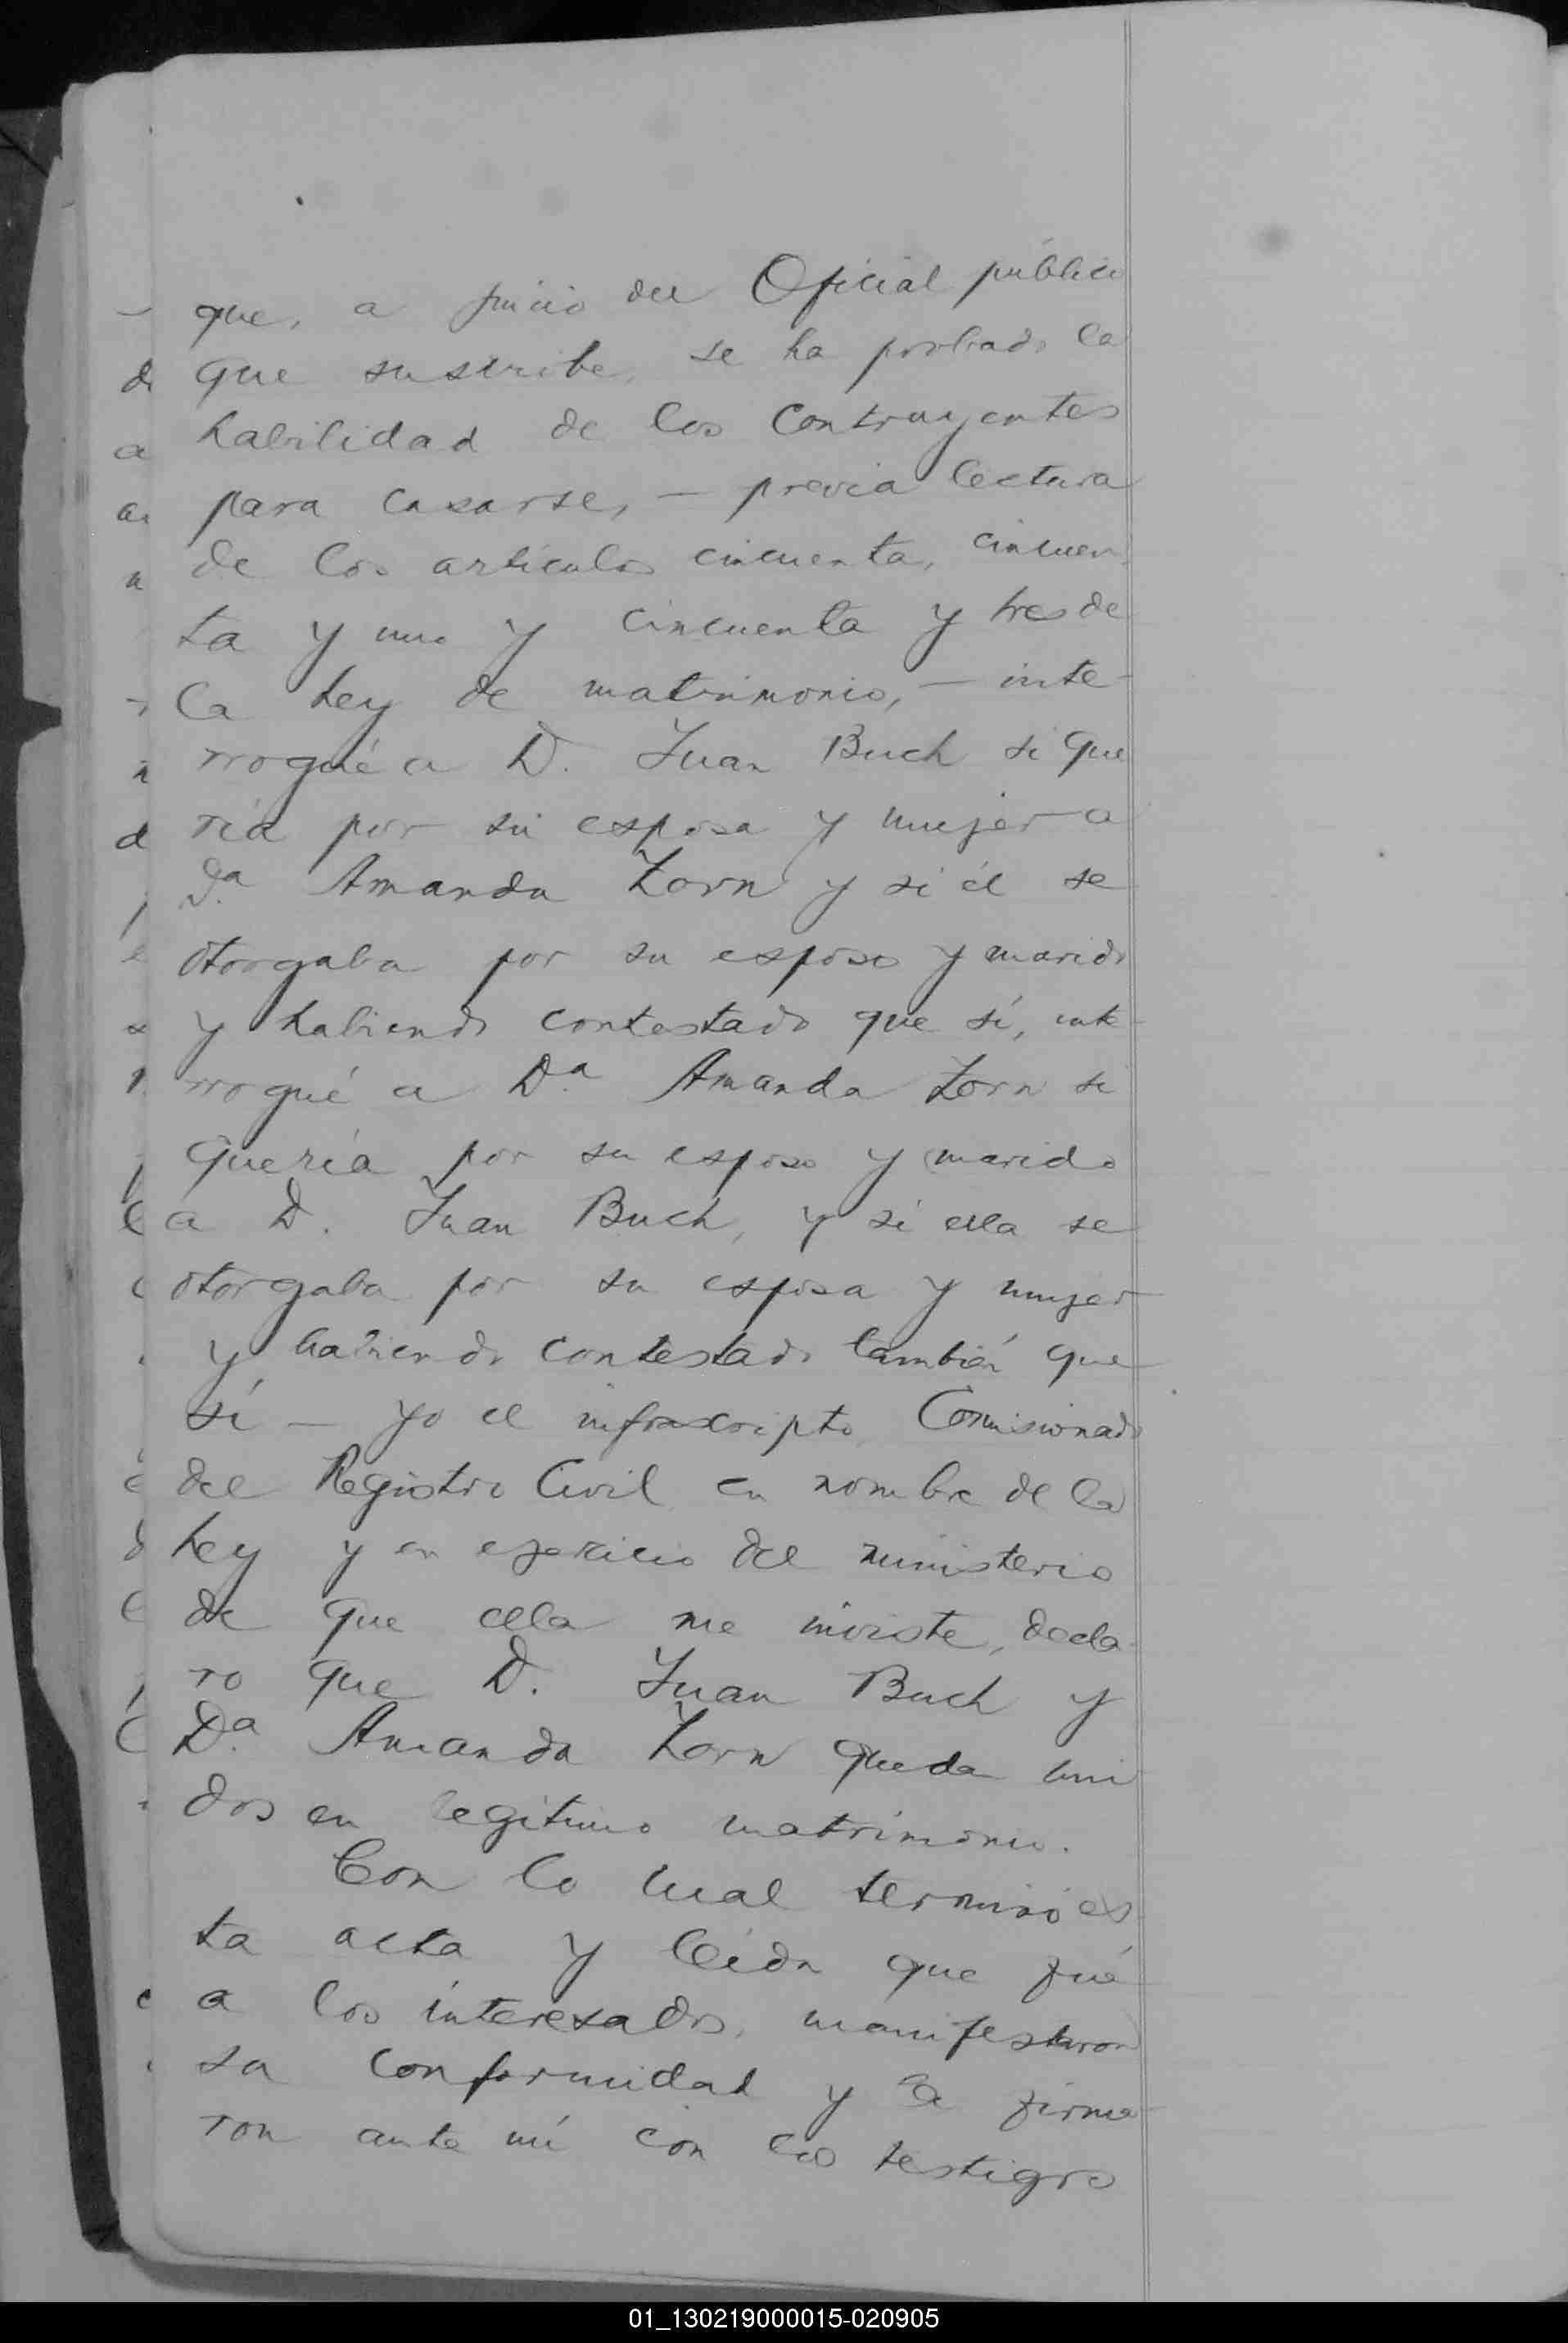 que, a juicio del Oficial público
que suscribe, se ha probado la
habilidad de los contrayentes
para casarse, — previa lectura
de los artículos cincuenta, cincuen
ta y uno y cincuenta y tres de
la Ley de matrimonio, — inte-
rrogué a D. Juan Buch si que
ría por su esposa y mujer a
Da. Amanda Zorn y si él se
otorgaba por su esposo y marido
y habiendo contestado que sí, inte-
rrogué a Da. Amanda Zorn si
quería por su esposo y marido
a D. Juan Buch, y si ella se
otorgaba por su esposa y mujer
y habiendo contestado también que
sí — yo el infrascripto Comisionado
del Registro Civil en nombre de la
Ley y en ejercicio del ministerio
de que ella me inviste, decla-
ro que D. Juan Buch y
Da. Amanda Zorn queda uni
dos en legítimo matrimonio.
Con lo cual terminó es
ta acta y leída que fué
a los interesados, manifestaron
su conformidad y la firma-
ron ante mí con los testigos
01_130219000015-020905